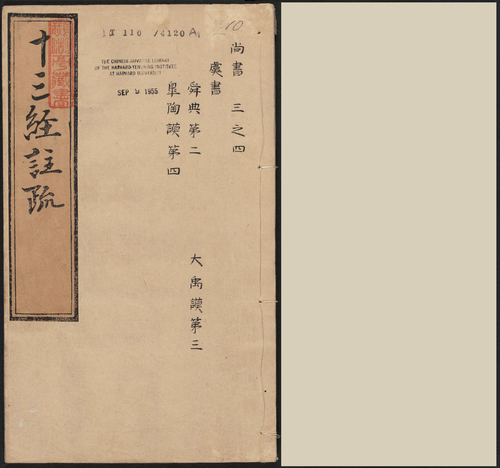 10
尚書 三之四
虞書
舜典第二 大禹謨第三
皐陶謨第四
THE CHINESE-JAPANESE LIBRARY
OF THE HARVARD-YENCHING INSTITUTE
AT HARVARD UNIVERSITY
SEP 9 1955
十三經註疏